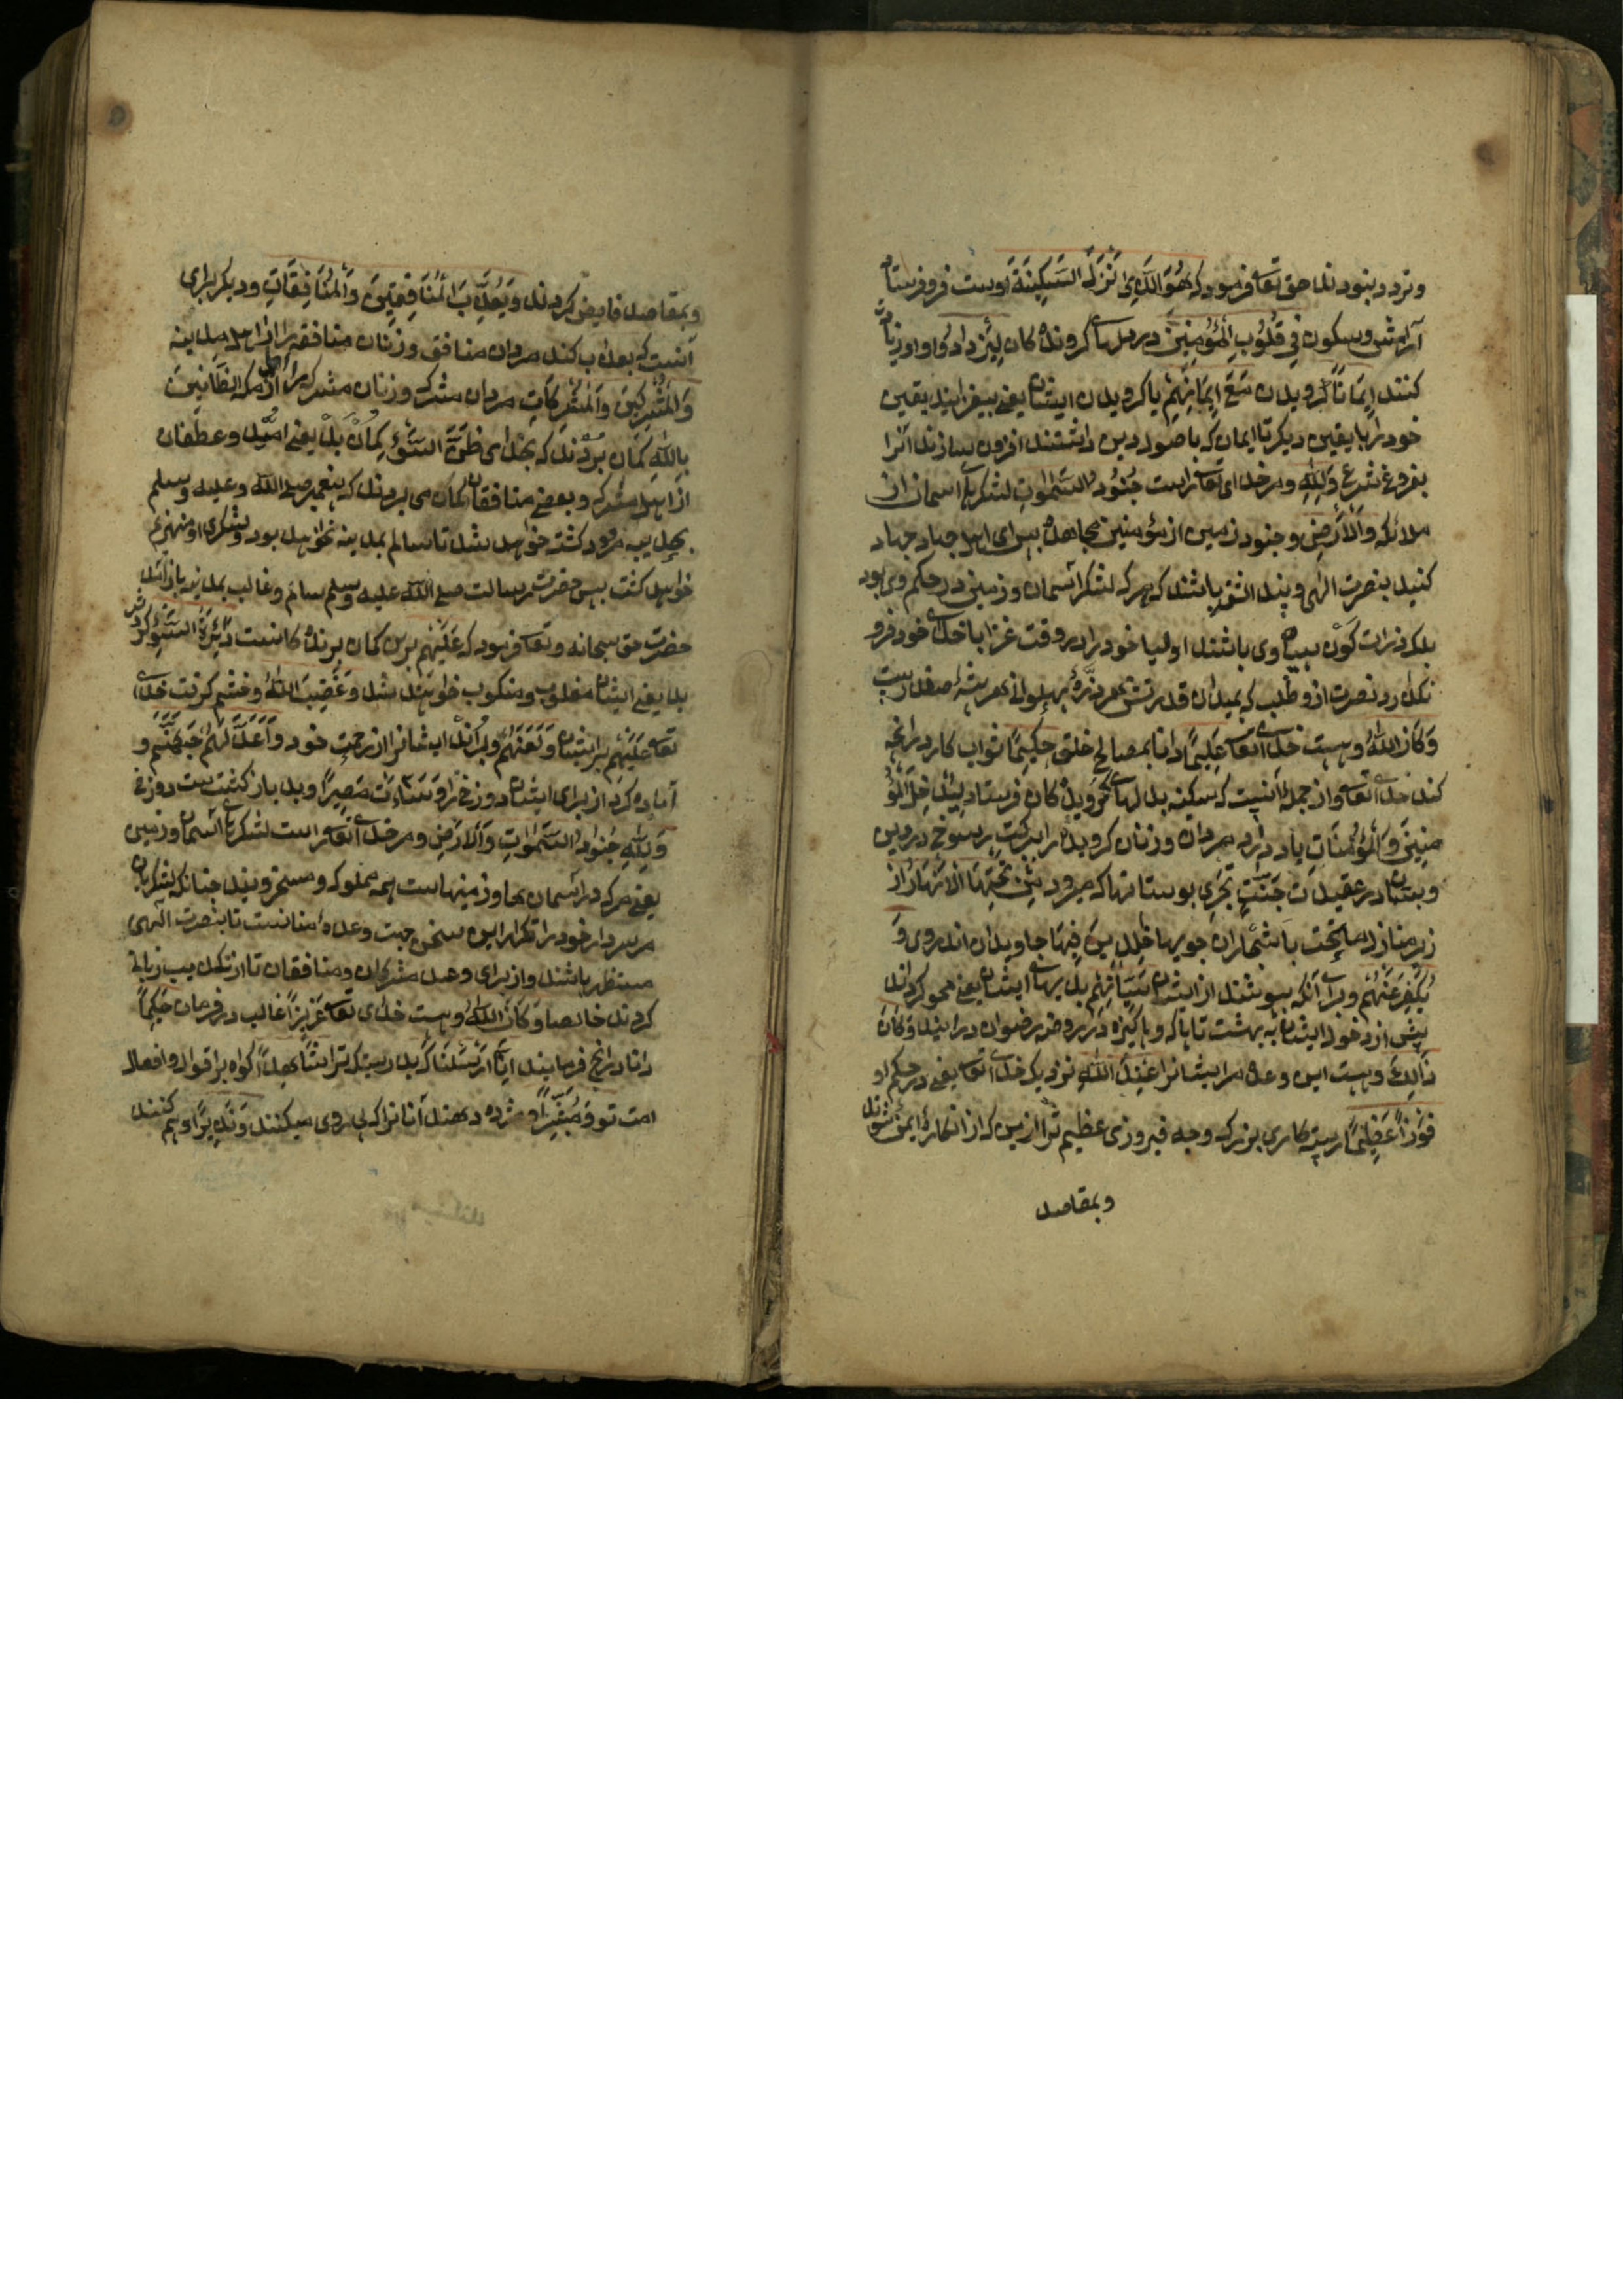 وتردد بنودند حق تعا فرمود که هُوَ الَّذِی اَنْزَلَ السَّکِینَةَ اوست فرو فرستاد
آرامش وسکون فِی قُلُوبِ الْمُؤمِنِینَ در دلهای کروندکان لِیَزْدَادُوا
کنند اِیمَانًا کرویدن مَعَ اِیمَانِهِمْ با کرویدن ایشان یعنی بیفزایند یقین
خود را با یقین دیکر تا ایمان که باصول دین داشتند افزون سازند انرا
بفروغ شرع وَلِلّٰهِ ومر خدای تعا راست جُنُودُ السَّمٰوَاتِ لشکرهای اسمان از
ملائکه وَالْاَرْضِ وجنود زمین از مؤمنین مجاهد پس ای اهل جهاد جهاد
کنید بنصرت الهی باشند که هر که لشکر آسمان وزمین در حکم وی بود
بلکه ذرات کَوْن سپاه وی باشند اولیا خود را در وقت غزا با خدای خود فرو
نکذارد نصرت ازو طلب که بمیدان قدرتش
وَکَانَ اللّٰهُ وهست خدای تعا عَلِیمًا دانا بمصالح خلق حَکِیمًا ثواب کار در انچه
کند خدای تعا واز جمله آنست که سکینه بدلهای کرویدکان فرستاد لِیُدْخِلَ الْمُؤْ
مِنِینَ وَالْمُؤْمِنَاتِ یا در ارد مردان وزنان کرویده را ببرکت رسوخ در دین
وثبات در عقیدت جَنّٰتٍ تَجْرِی بوستانها که میرود مِنْ تَحْتِهَا الْاَنْهَارُ از
زیر منازل یا تحت باشجاران جویها خٰلِدِینَ فِیهَا جاویدان اندروی وَ
یُکَفِّرَ عَنْهُمْ وبرای آنکه بپوشند از ایشان سَیِّأتِهِمْ بدیهای ایشان یعنی محو کرداند
پیش از دخول ایشان به بهشت تا پاک وپاکیزه در روضه رضوان درایند وَکَانَ
ذٰلِکَ وهست این وعده مر ایشانرا عِنْدَ اللّٰهِ نزدیک خدای تعا یعنی در حکم او
فَوْزًا عَظِیمًا رستکاری بزرک وچه فیروزی عظیم تر ازین که از انکاره ایمن شوند
وبمقاصد
وبمقاصد فایض کردند وَیُعَذِّبَ الْمُنَافِقِینَ وَالْمُنَافِقَاتِ ودیکر برای
آنست که بعذاب کند مردان منافق وزنان منافقه را از اهل مدینه
وَالْمُشْرِکِینَ وَالْمُشْرِکَاتِ مردان مشرک وزنان مشرکه را از اهل مکه الظَّانِّینَ
بِاللّٰهِ کمان برندکه بخدای ظَنَّ السَّوْءِ کمان بد یعنی
از اهل شرک وبعضی منافقان کمان می بردند که پیغمبر صلی اللّٰه وعلیه وسلم
بحدیبیه خواهد شد تا سالم بمدینه نخواهد بود ولشکری او منهزم
خواهد کشت پس حضرت رسالت صلی اللّٰه علیه وسلم سالم وغالب بمدینه باز آمد
حضرت حق سبحانه وتعا فرمود که عَلَیْهِمْ برین کمان برندکانست دَائِرَةُ السَّوْءِ کردش
بد یعنی ایشان مغلوب ومنکوب خواهند شد وَغَضِبَ اللّٰهُ وخشم کرفت خدای
تعا عَلَیْهِمْ بر ایشان وَلَعَنَهُمْ وبراند ایشانرا از رحمت خود وَاَعَدَّ لَهُمْ جَهَنَّمَ و
آماده کرد از برای ایشان دوزخ را وَسَاءَتْ مَصِیرًا وبد باز کشت ست دوزخ
وَلِلّٰهِ جُنُودُ السَّمٰوَاتِ وَالْاَرْضِ ومر خدای تعا راست لشکرهای آسمان وزمین
یعنی هر که در آسمان ها وزمینهاست همه مملوک ومسخر ویند چنانکه لشکریان
مر سردار خود را تکرار این سخن جهت وعده مؤمنانست تا بنصرت الهی
مستظهر باشند واز برای وعید مشرکان ومنافقان تا از تکذیب
کردند خایف وَکَانَ اللّٰهُ وهست خدای تعا عَزِیزًا غالب در فرمان حَکِیمًا
دانا در انچ فرماید اِنَّا اَرْسَلْنَاکَ بدرستیکه ترا شَاهِدًا کواه بر اقوال وافعال
امت تو وَمُبَشِّرًا ومژده دهنده آنانرا که وَنَذِیرًا وبیم کننده